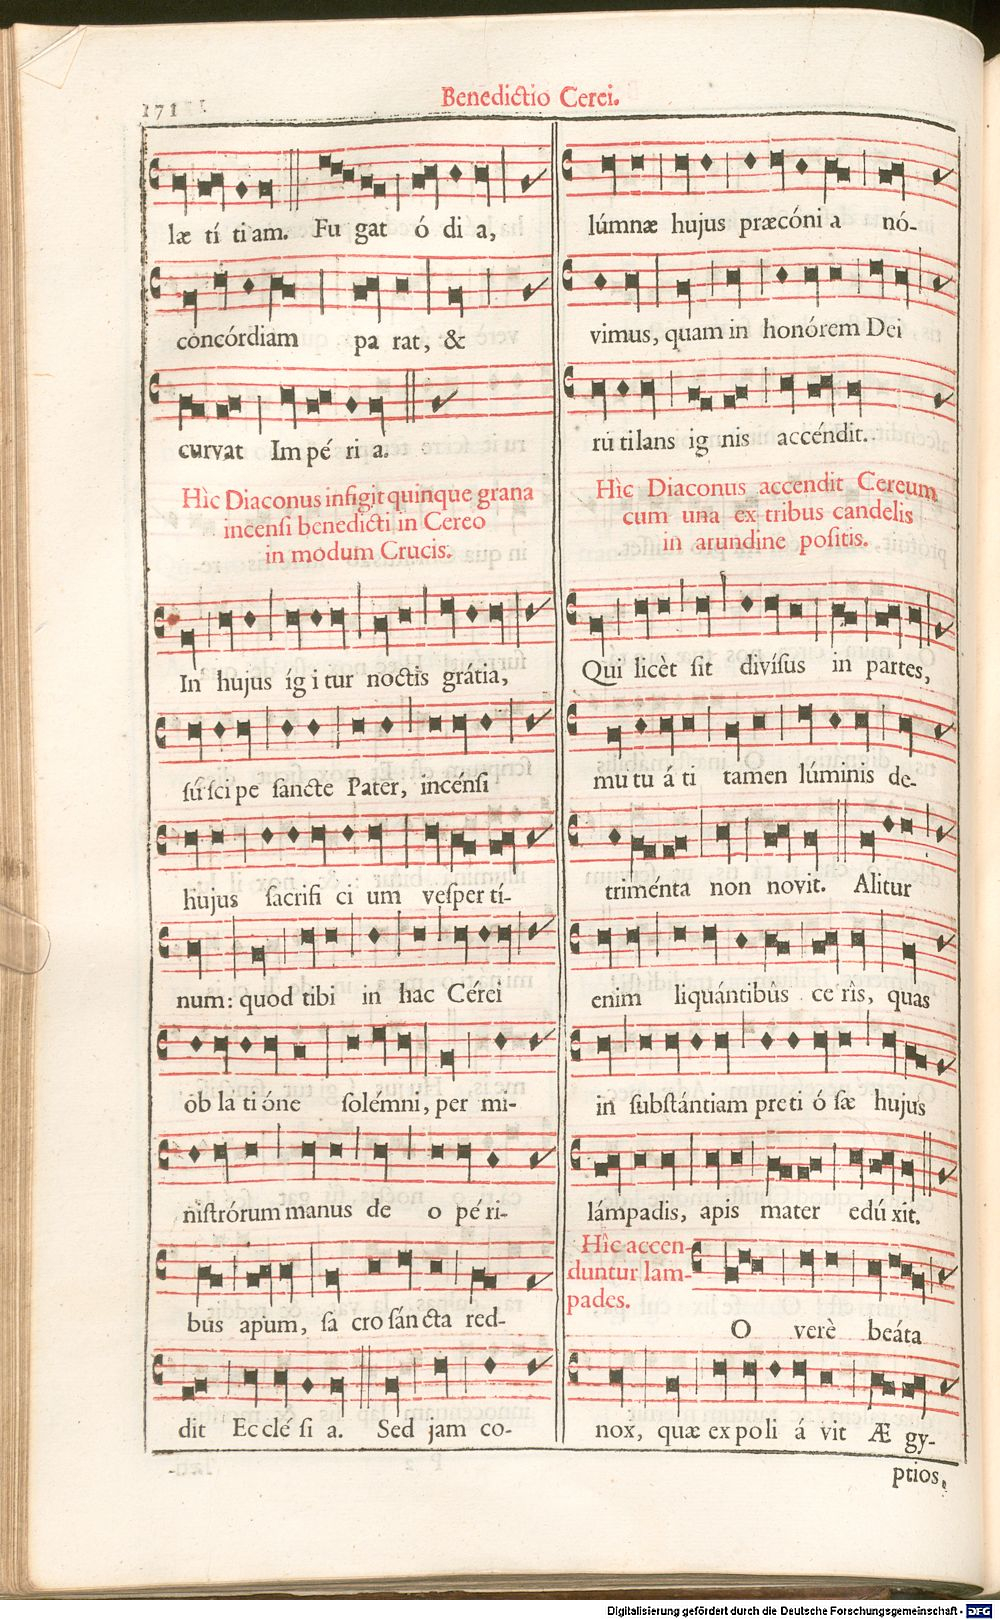 171
Benedictio Cerei.
læ tí ti am. Fu gat ó di a,
concórdiam pa rat, &
curvat Im pé ri a.
Hìc Diaconus infigit quinque grana
incensi benedicti in Cereo
in modum Crucis.
In hujus íg i tur noctis grátia,
sú sci pe sancte Pater, incénsi
hujus sacrifi ci um vesper tí-
num: quod tibi in hac Cérei
ob la ti óne solémni, per mi-
nistrórum manus de o pé ri-
bus apum, sa cro sán cta red-
dit Ec clé si a. Sed jam co-
lúmnæ hujus præcóni a nó-
vimus, quam in honórem Dei
rú tilans ig nis accéndit.
Hìc Diaconus accendit Cereum
cum una ex tribus candelis
in arundine positis.
Qui licèt sit divísus in partes,
mu tu á ti tamen lúminis de-
triménta non novit. Alitur
enim liquántibus ce ris, quas
in substántiam pre ti ó sæ hujus
lámpadis, apis mater edú xit.
Hîc accen-
duntur lam-
pades.
O verè beáta
nox, quæ ex po li á vit Æ gy-
ptios,
Digitalisierung gefördert durch die Deutsche Forschungsgemeinschaft - DFG